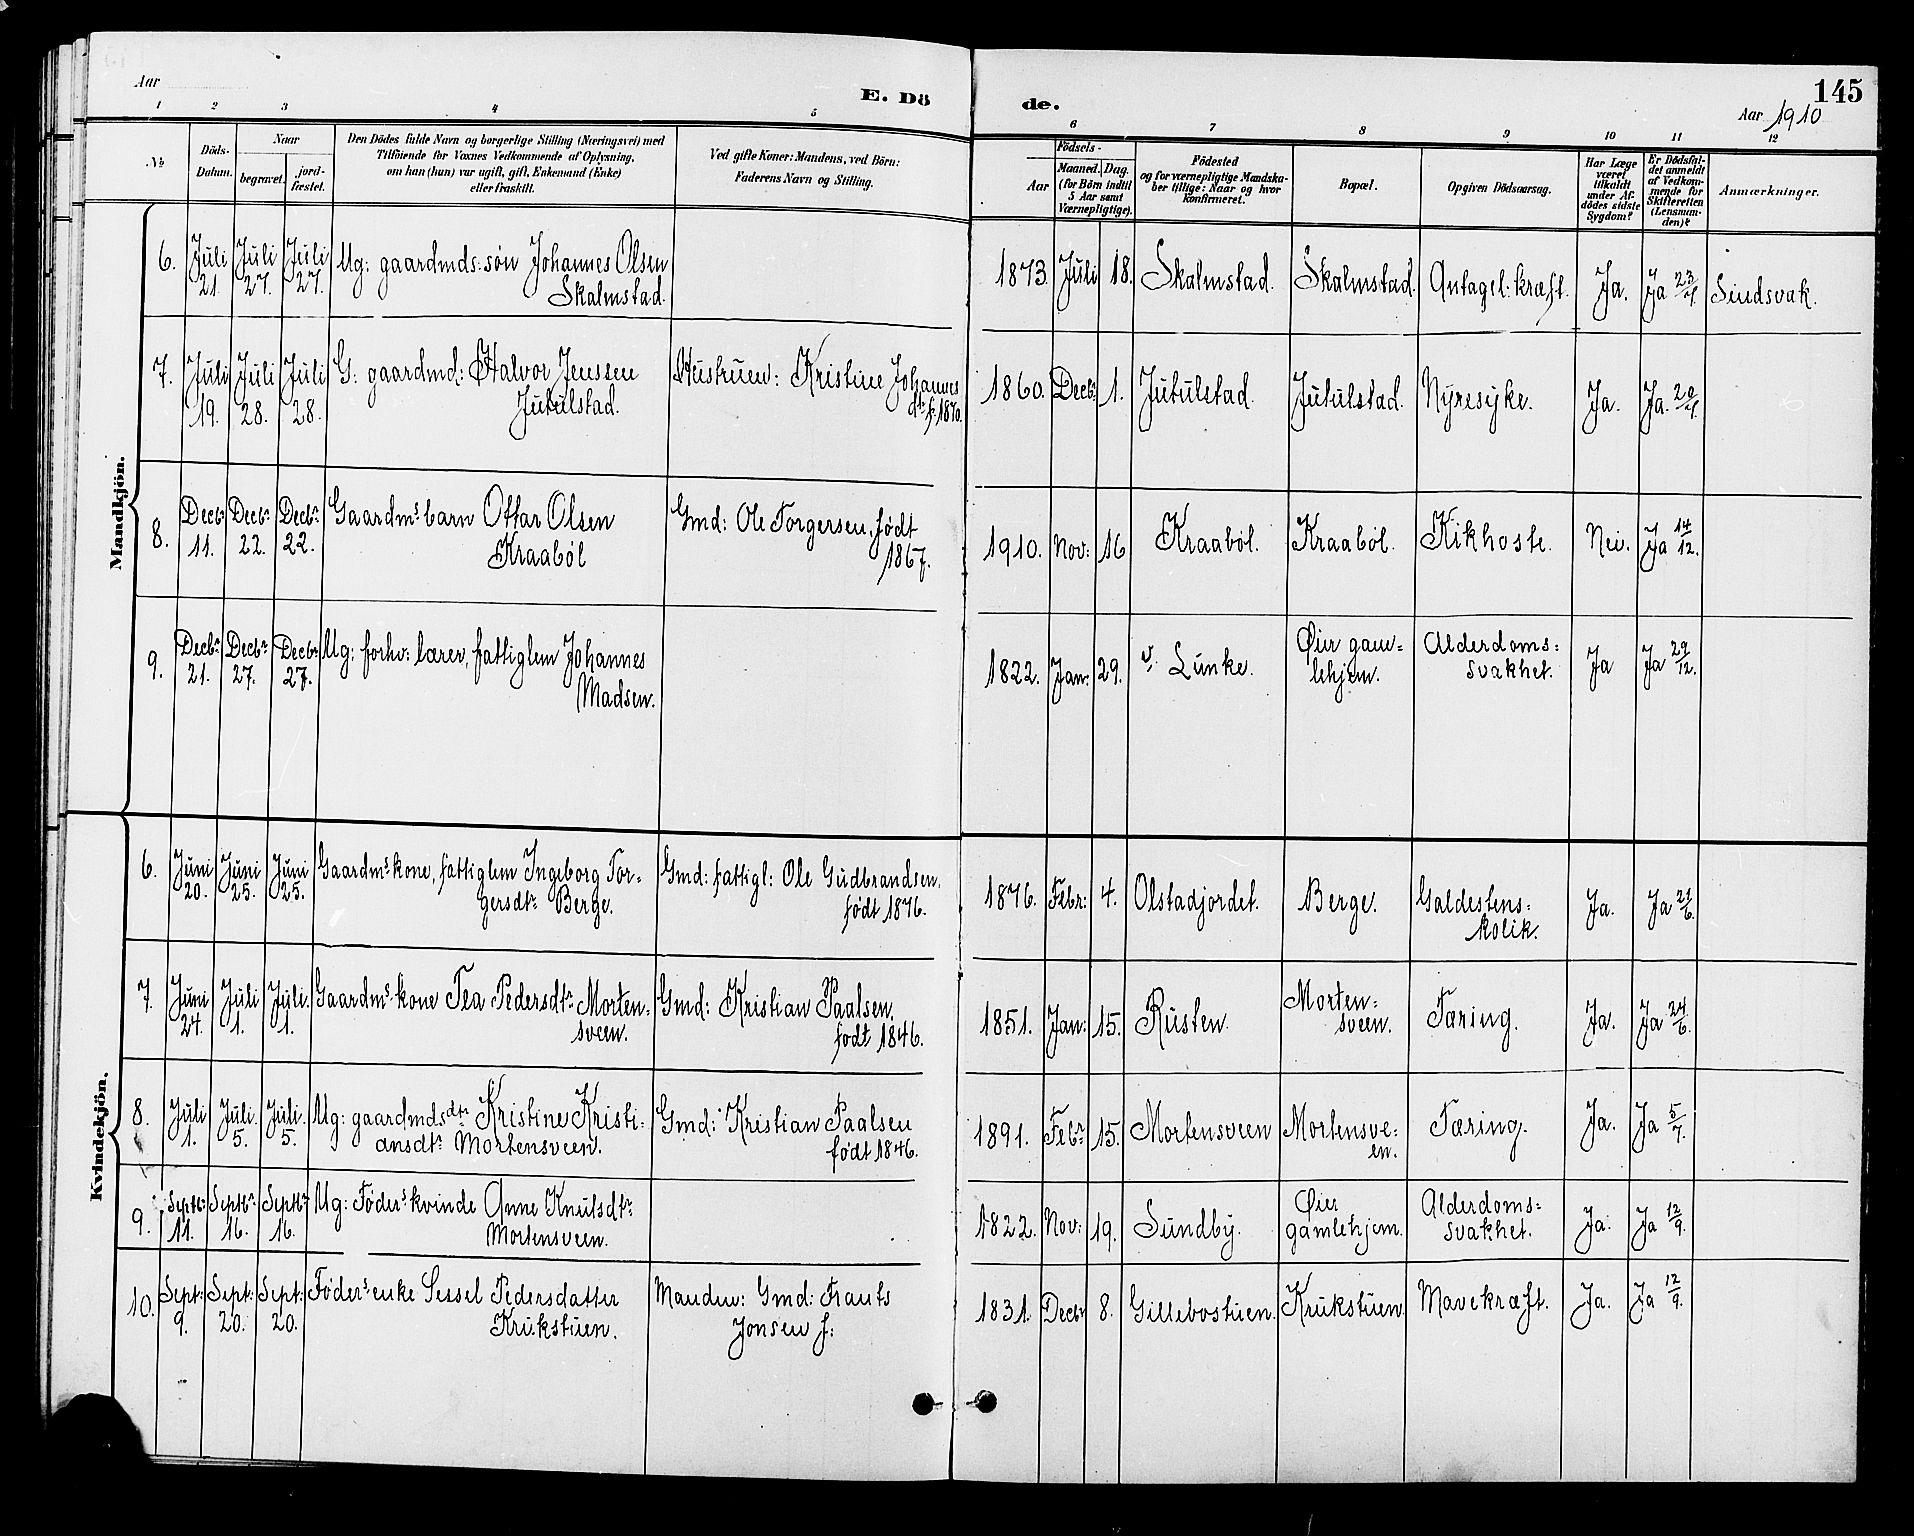 Aar
E. Dö
de.
145
Aar 1910
1 2 3 4 5 6 7 8 9 10 11 12
No
Döds-
Datum.
Naar
begravet.
jord-
fæstet.
Den Dödes fulde Navn og borgerlige Stilling (Næringsvei) med
Tilföiende for Voxnes Vedkommende af Oplysning,
om han (hun) var ugift, gift, Enkemand (Enke)
eller fraskilt.
Ved gifte Koner: Mandens, ved Börn:
Faderens Navn og Stilling.
Födsels-
Aar
Maaned. Dag.
(for Börn indtil
5 Aar samt
Værnepligtige).
Födested
og for værnepligtige Mandska-
ber tillige: Naar og hvor
konfirmeret.
Bopæl.
Opgiven Dödsaarsag.
Har Læge
været
tilkaldt
under Af-
dödes sidste
Sygdom?
Er Dödsfal-
det anmeldt
af Vedkom-
mende for
Skifteretten
(Lensman-
den)?
Anmærkninger.
Mandkjön.
6. Juli 21. Juli 27. Juli 27. Ug: gaardmds: søn Johannes Olsen
Skalmstad.
1873. Juli 18. Skalmstad. Skalmstad. Antagel: kræft. Ja. Ja 23/7. Sindsvak.
7. Juli 19. Juli 28. Juli 28. G: gaardmd: Halvor Jenssen
Jutulstad.
Hustruen: Kristine Johannes
dtr f. 1870.
1860. Decbr. 1. Jutulstad. Jutulstad. Nyresyke. Ja. Ja. 20/7.
8. Decbr 11. Decbr 22. Decbr 22. Gaardms barn Ottar Olsen
Kraabøl
Gmd: Ole Torgersen, født
1867.
1910. Nov: 16 Kraabøl. Kraabøl. Kikhoste. Nei. Ja 14/12.
9. Decbr 21. Decbr 27. Decbr 27. Ug: forhv: lærer, fattiglem Johannes
Madsen.
1822. Jan: 29. v. Lunke. Øier gam-
lehjem.
Alderdoms:
svakhet.
Ja Ja 29/12.
Kvindekjön.
6. Juni 20. Juni 25. Juni 25. Gaardms kone, fattiglem Ingeborg Tor-
gersdtr Berge.
Gmd: fattigl: Ole Gudbrandsen,
født 1876.
1876. Febr: 4. Olstadjordet. Berge. Galdestens:
kolik.
Ja. Ja 21/6.
7. Juni 24. Juli 1. Juli 1. Gaardms kone Tea Pedersdtr Morten-
sveen.
Gmd: Kristian Paalsen,
født 1846.
1851. Jan: 15. Rusten. Morten:
sveen.
Tæring. Ja. Ja 24/6.
8. Juli 1. Juli 5. Juli 5. Ug: gaardmdsdtr Kristine Kristi-
ansdtr Mortensveen.
Gmd: Kristian Paalsen
født 1846.
1891. Febr 15. Mortensveen Mortensve-
en.
Tæring. Ja. Ja 5/7.
9. Septbr: 11. Septbr 16. Septbr 16. Ug: Føderskvinde Anne Knutsdtr
Mortensveen.
1822. Nov: 19. Sundby. Øier
gamlehjem.
Alderdoms:
svakhet.
Ja. Ja 12/9.
10. Sept: 9. Sept: 20. Sept: 20. Føders enke Sessel Pedersdatter
Krukstuen.
Manden: Gmd: Frants
Jonsen f:
1831. Decbr 8. Gillebostuen. Krukstuen. Mavekræft. Ja. Ja 12/9.